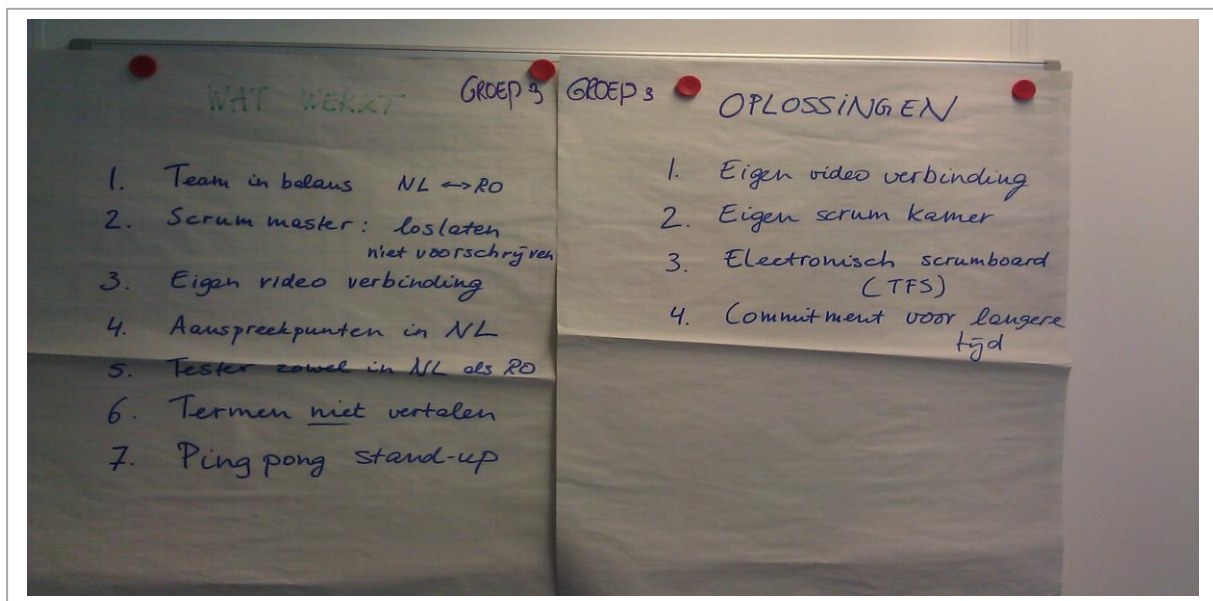 GROEP 3
WAT WERKT
1. Team in balans NL <-> RO
2. Scrum master: loslaten
niet voorschrijven
3. Eigen video verbinding
4. Aanspreekpunten in NL
5. Tester zowel in NL als RO
6. Termen niet vertalen
7. Ping pong stand-up
GROEP 3
OPLOSSINGEN
1. Eigen video verbinding
2. Eigen scrum kamer
3. Electronisch scrumboard
(TFS)
4. Commitment voor langere
tijd